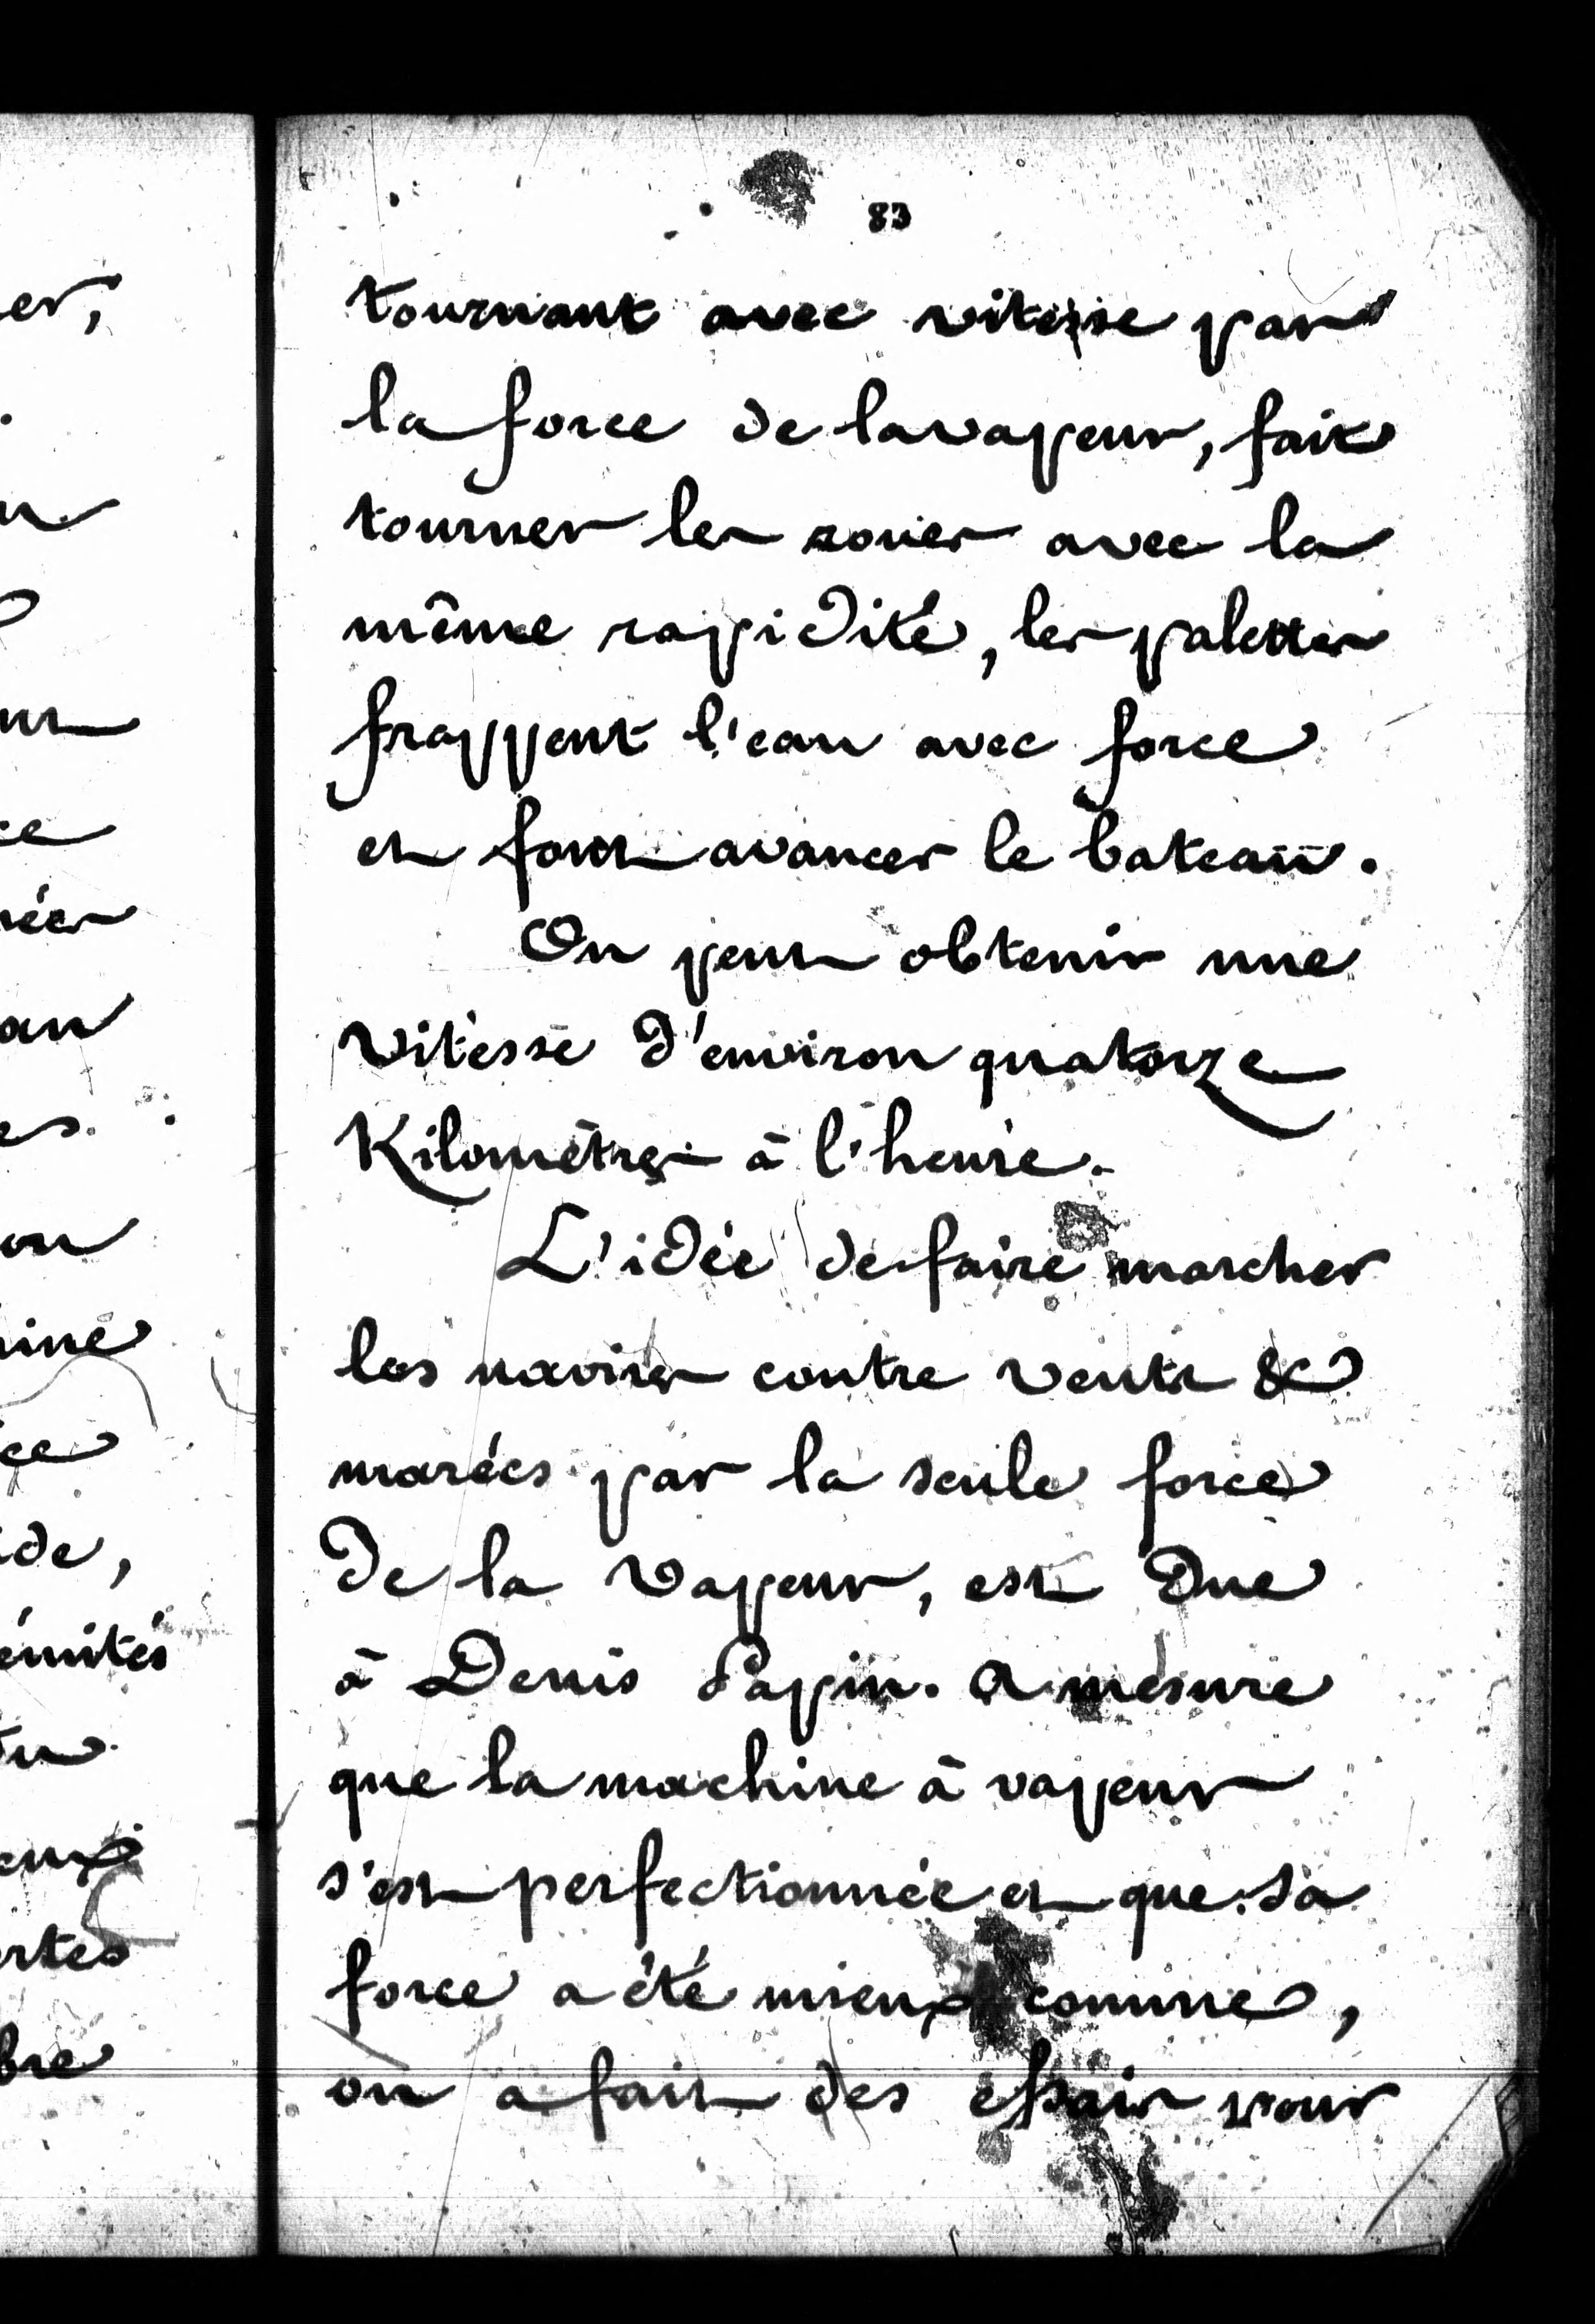 83
tournant avec vitesse par
la force de la vapeur, fait
tourner les roues avec la
même rapidité, les palettes
frappent l'eau avec force
et font avancer le bateau.
On peut obtenir une
vitesse d'environ quatorze
Kilomètres à l'heure.
L'idée de faire marcher
les navires contre vents &
marées par la seule force
de la vapeur, est due
à Denis Papin. A mesure
que la machine à vapeur
s'est perfectionnée et que sa
force a été mieux connue,
on a fait des essais pour